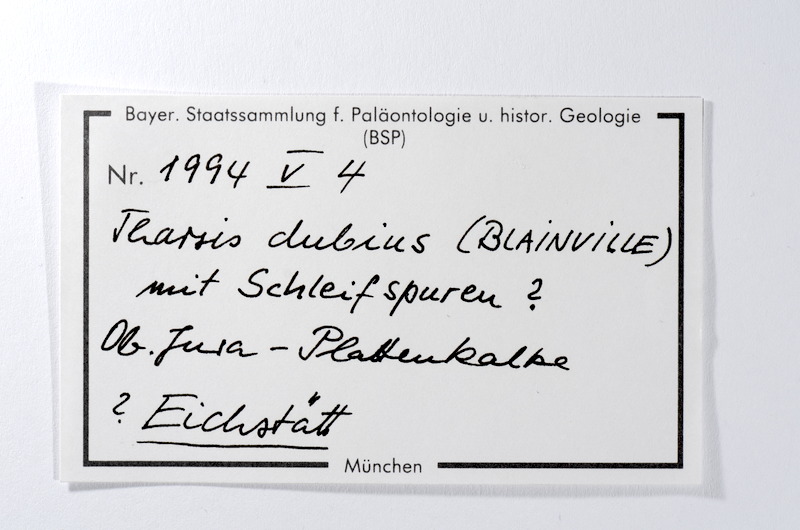 Bayer. Staatssammlung f. Paläontologie u. histor. Geologie
(BSP)
Nr. 1994 V 4
Tharsis dubius (BLAINVILLE)
mit Schleifspuren ?
Ob. Jura - Plattenkalke
? Eichstätt
München